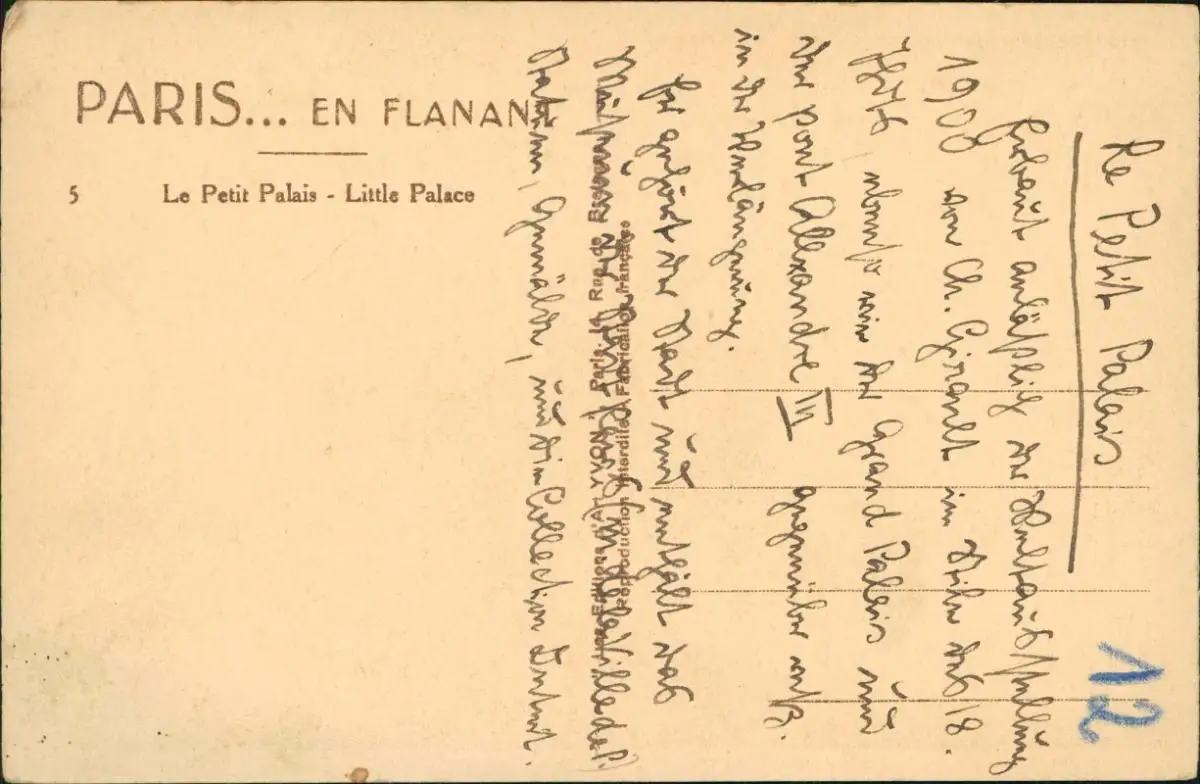 PARIS... EN FLANANT
5 Le Petit Palais - Little Palace
Editions d'Art YVON, Paris, 14 Rue de
Reproduction Interdite. Fabrication française
Le Petit Palais
Erbaut anläßlich der Weltausstellung
1900 von Ch. Girault im Stile des 18.
Jhdts, ebenso wie der Grand Palais und
der pont Alexandre III gegenüber
in der Verlängerung.
Er gehört der Stadt und enthält das
de la Ville de P.
Statuen, Gemälde, und die Collection Dutuit.
12